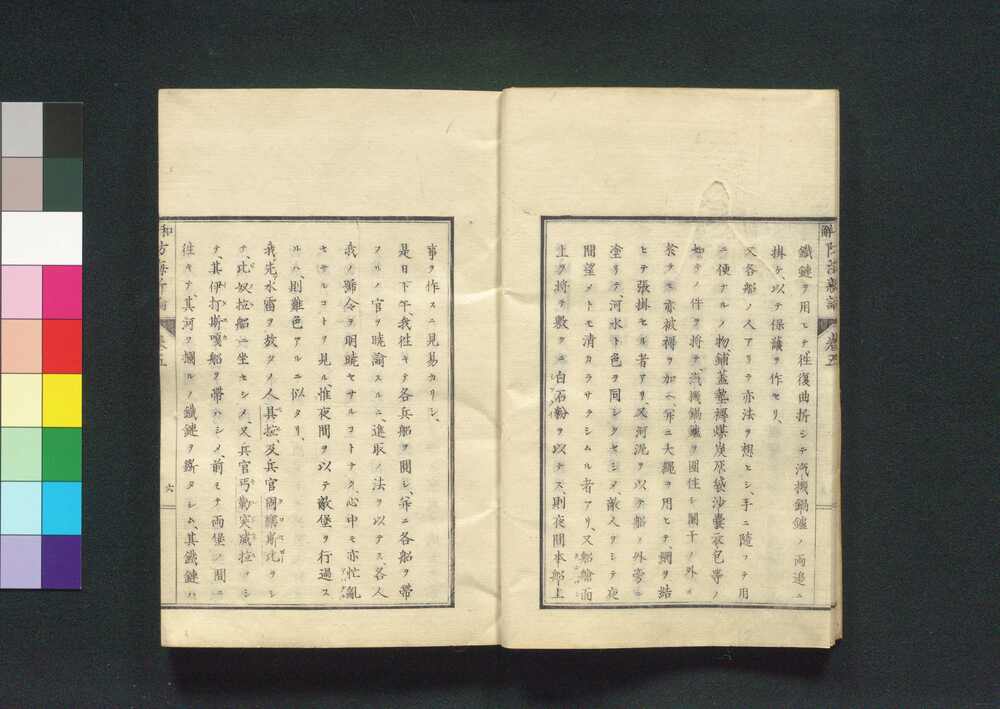 鐵鏈ヲ用ヒテ往復曲折シテ汽機鍋鑪ノ兩邊ニ
掛ケ、以テ保護ヲ作セリ、
又各船ノ人アリテ亦法ヲ想ヒシ、手ニ隨ツテ用
ニ便ナルノ物、鋪蓋墊褥煤炭灰袋沙囊衣包等ノ
ノ件ヲ將テ、汽機鍋鑪ヲ圍住シ闌干ノ外
ヲモ亦被褥ヲ加ヘ、並ニ大繩ヲ用ヒテ網ヲ結
ヒテ張掛セル者アリ、又河泥ヲ以テ船ノ外旁ニ
塗リテ、河水ト色ヲ同シクセシメ、敵人ヲシテ夜
間望メトモ清カラサラシムル者アリ、又船艙面
上ヲ將テ敷クニ白石粉ヲ以テス、則夜間本船上
事ヲ作スニ見易カリシ、
是日下午、我往キテ各兵船ヲ閲シ、並ニ各船ヲ帶
フルノ官ヲ曉諭スルニ、進取ノ法ヲ以テス、各人
我ノ號令ヲ明曉セサルコトナク、心中モ亦忙亂
セサルコトヲ見ル、惟夜間ヲ以テ敵堡ヲ行過ス
ルハ、則難色アルニ似タリ、
我先水雷ヲ放ツノ人具拉、及兵官闊縲斯比ヲシ
テ、此奴拉船ニ坐セシメ、又兵官丐勒突威拉ヲシ
テ、其伊打斯嘎船ヲ帶ハシメ、前ミテ兩堡ノ間ニ
往キテ、其河ヲ攔ルノ鐵鏈ヲ斷タシム、其鐵鏈ハ
六